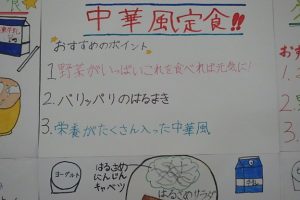 中華風定食!!
おすすめのポイント
1 野菜がいっぱいこれを食べれば元気に!
2. パリッパリのはるまき
3. 栄養がたくさん入った中華風
ヨーグルト
はるさめ
にんじん
キャベツ
はるさめサラダ